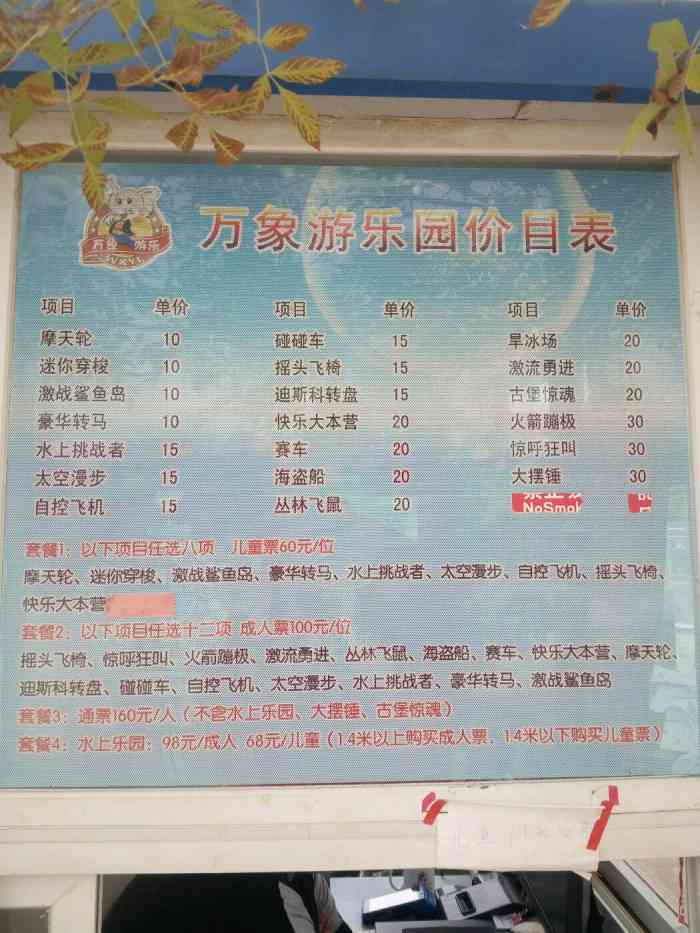 万象游乐
万象游乐园价目表
项目 单价 项目 单价 项目 单价
摩天轮 10 碰碰车 15 旱冰场 20
迷你穿梭 10 摇头飞椅 15 激流勇进 20
激战鲨鱼岛 10 迪斯科转盘 15 古堡惊魂 20
豪华转马 10 快乐大本营 20 火箭蹦极 30
水上挑战者 15 赛车 20 惊呼狂叫 30
太空漫步 15 海盗船 20 大摆锤 30
自控飞机 15 丛林飞鼠 20
NoSmok
套餐1：以下项目任选八项 儿童票60元/位
摩天轮、迷你穿梭、激战鲨鱼岛、豪华转马、水上挑战者、太空漫步、自控飞机、摇头飞椅、
快乐大本营
套餐2：以下项目任选十二项 成人票100元/位
摇头飞椅、惊呼狂叫、火箭蹦极、激流勇进、丛林飞鼠、海盗船、赛车、快乐大本营、摩天轮、
迪斯科转盘、碰碰车、自控飞机、太空漫步、水上挑战者、豪华转马、激战鲨鱼岛
套餐3：通票160元/人（不含水上乐园、大摆锤、古堡惊魂）
套餐4：水上乐园：98元/成人 68元/儿童（1.4米以上购买成人票，1.4米以下购买儿童票）